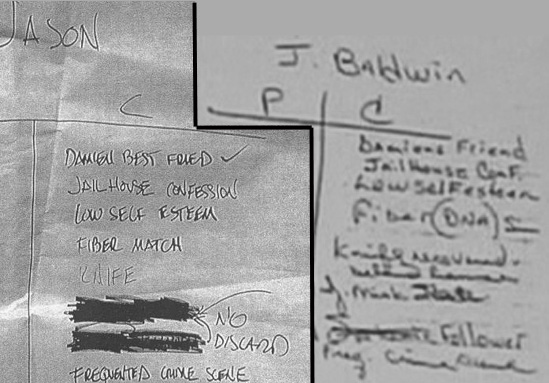 JASON
C
DAMIEN BEST FRIED ✓
JAILHOUSE CONFESSION
LOW SELF ESTEEM
FIBER MATCH
KNIFE
NO
DISCARD
FREQUENTED CRIME SCENE
J. Baldwin
P C
Damiens Friend
Jailhouse Conf.
Low Self esteem
Fiber (DNA)
Knife recovered
behind
State
Follower
Freq. Crime